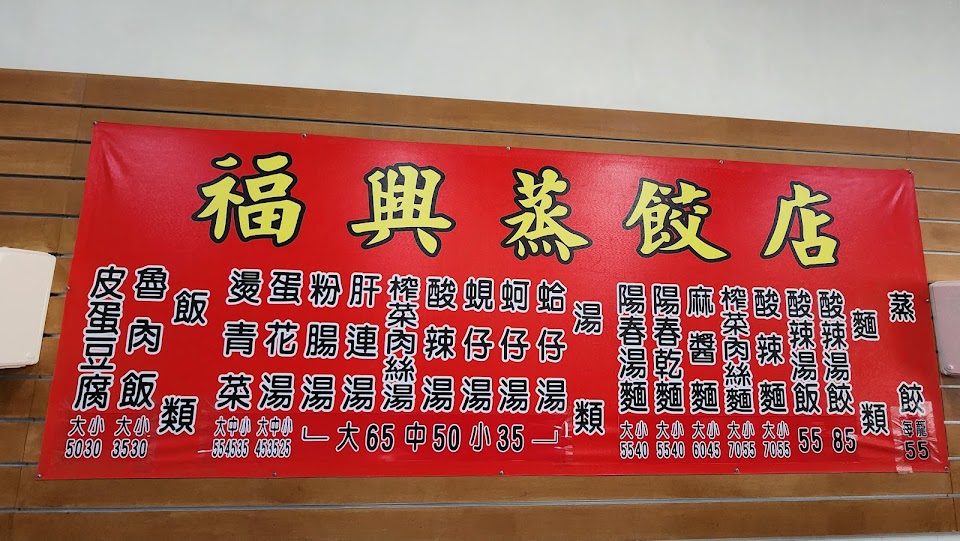 福興蒸餃店
蒸餃
每籠
55
麵類
酸辣湯餃
85
酸辣湯飯
55
酸辣麵
大小
7055
榨菜肉絲麵
大小
7055
麻醬麵
大小
6045
陽春乾麵
大小
5540
陽春湯麵
大小
5540
湯類
蛤仔湯
蚵仔湯
蜆仔湯
酸辣湯
榨菜肉絲湯
肝連湯
粉腸湯
大65中50小35
蛋花湯
大中小
453525
燙青菜
大中小
554535
飯類
魯肉飯
大小
3530
皮蛋豆腐
大小
5030